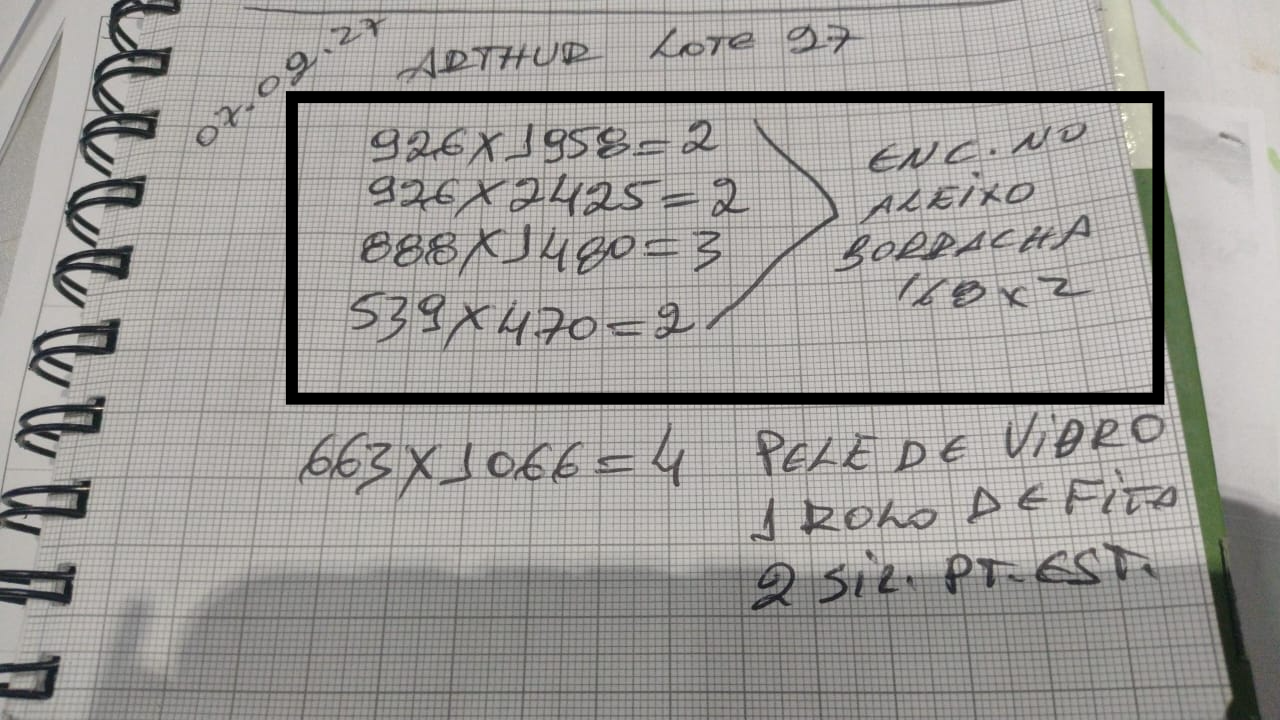 ARTHUR Lote 97
926X1958=2
926X2425=2
888X1480=3
539X470=2
ENC. NO
ALEIXO
BORRACHA
168x2
663X1066=4
PELE DE VIDRO
1 ROLO DE FITA
2 SIL. PT. EST.